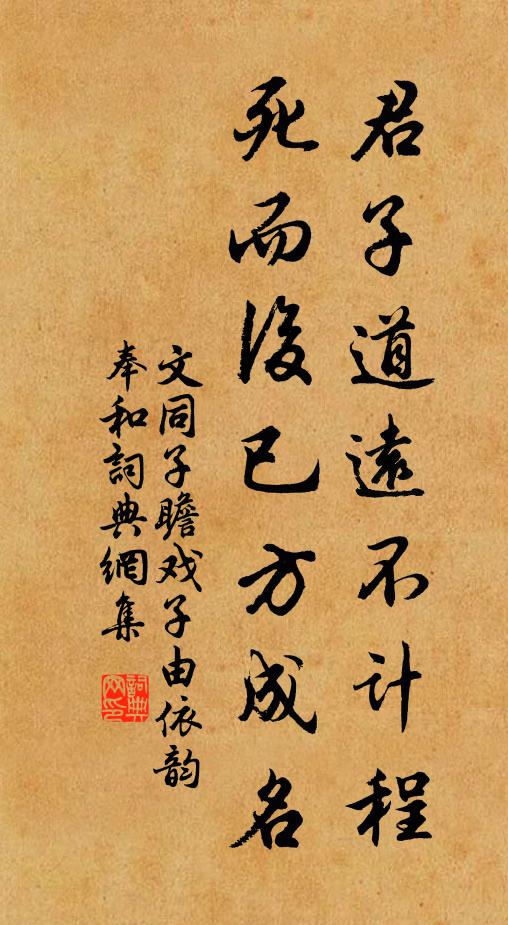 君子道遠不計程
死而後已方成名
文同子瞻戏子由依韵
奉和詞典網集
詞典網印